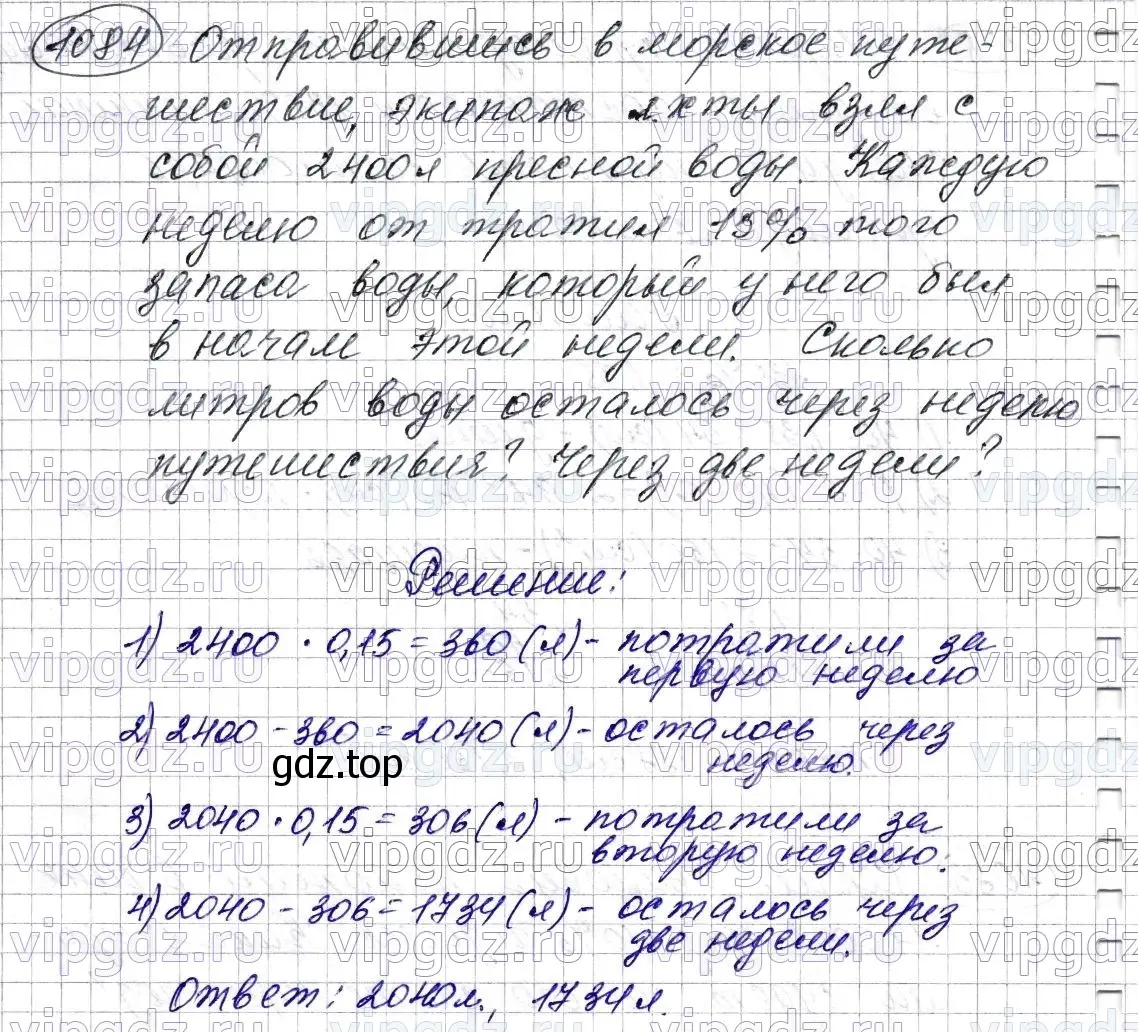 1084 Отправившись в морское путе-
шествие, экипаж яхты взял с
собой 2400 л пресной воды. Каждую
неделю он тратил 15% того
запаса воды, который у него был
в начале этой недели. Сколько
литров воды осталось через неделю
путешествия? Через две недели?
Решение:
1) 2400 · 0,15 = 360 (л) - потратили за
первую неделю
2) 2400 - 360 = 2040 (л) - осталось через
неделю.
gdz.top
3) 2040 · 0,15 = 306 (л) - потратили за
вторую неделю.
4) 2040 - 306 = 1734 (л) - осталось через
две недели.
Ответ: 2040 л., 1734 л.
vipgdz.ru